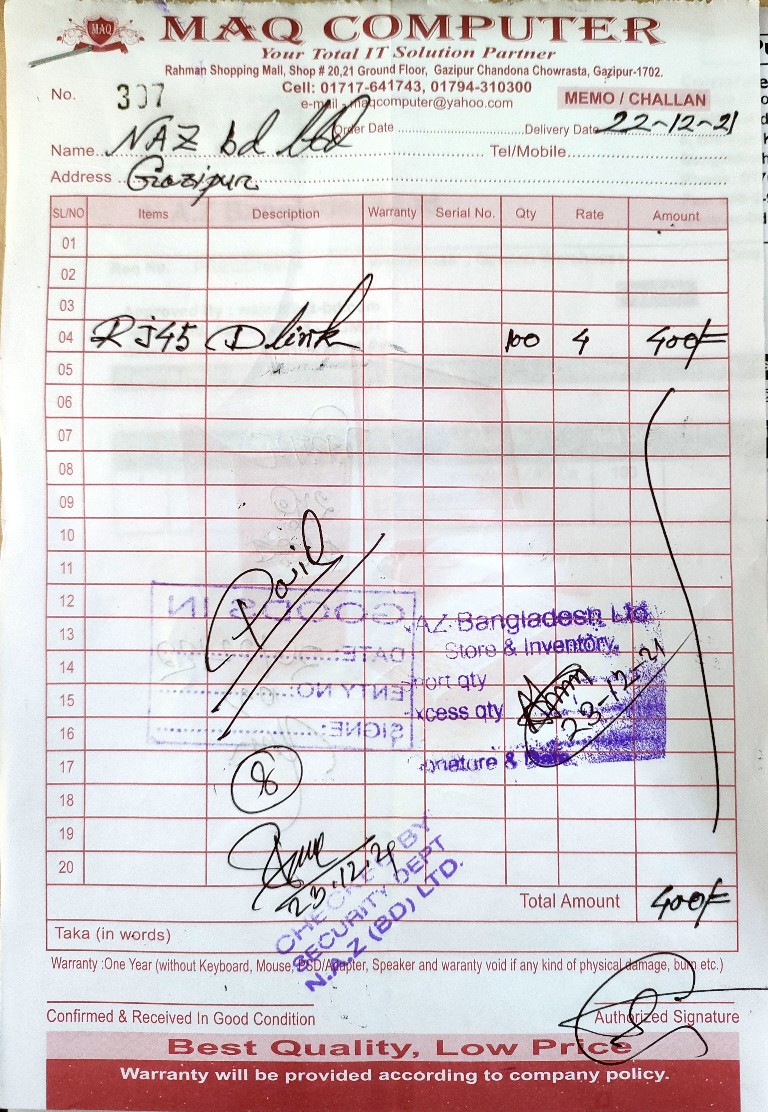 MAQ
MAQ COMPUTER
Your Total IT Solution Partner
Rahman Shopping Mall, Shop # 20,21 Ground Floor, Gazipur Chandona Chowrasta, Gazipur-1702.
Cell: 01717-641743, 01794-310300
e-mail - maqcomputer@yahoo.com
No. 307 MEMO / CHALLAN
Order Date Delivery Date 22-12-21
Name NAZ bd ltd Tel/Mobile
Address Gazipur
SL/NO Items Description Warranty Serial No. Qty Rate Amount
01
02
03
04 RJ45 Dlink 100 4 400/=
05
06
07
08
09
10
11
Paid
12
13
14
15
16
17
18
19
20
GOODS IN
DATE:
ENTY NO:
SIGNE:
AZ Bangladesh Ltd
Store & Inventory.
ort qty
xcess qty
23-12-21
nature &
23.12.21
CHECKED BY
SECURITY DEPT
N.A.Z (BD) LTD.
Total Amount 400/=
Taka (in words)
Warranty :One Year (without Keyboard, Mouse, PSD/Adapter, Speaker and waranty void if any kind of physical damage, burn etc.)
Confirmed & Received In Good Condition Authorized Signature
Best Quality, Low Price
Warranty will be provided according to company policy.